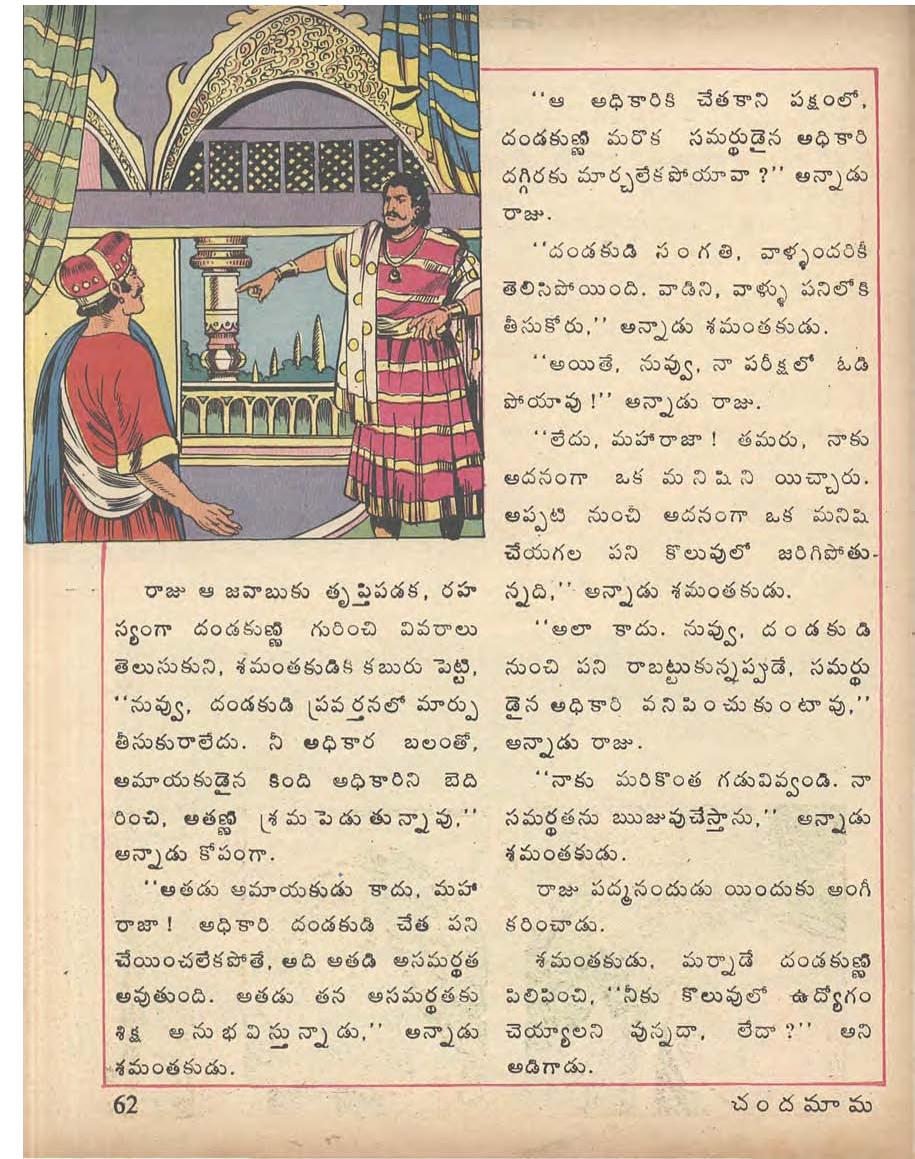 రాజు ఆ జవాబుకు తృప్తిపడక, రహ
స్యంగా దండకుణ్ణి గురించి వివరాలు
తెలుసుకుని, శమంతకుడికి కబురు పెట్టి,
‘‘నువ్వు, దండకుడి ప్రవర్తనలో మార్పు
తీసుకురాలేదు. నీ అధికార బలంతో,
అమాయకుడైన కింది అధికారిని బెది
రించి, అతణ్ణి శ్రమపెడుతున్నావు,’’
అన్నాడు కోపంగా.
‘‘అతడు అమాయకుడు కాదు, మహా
రాజా! అధికారి దండకుడి చేత పని
చేయించలేకపోతే, అది అతడి అసమర్థత
అవుతుంది. అతడు తన అసమర్థతకు
శిక్ష అనుభవిస్తున్నాడు,’’ అన్నాడు
శమంతకుడు.
‘‘ఆ అధికారికి చేతకాని పక్షంలో,
దండకుణ్ణి మరొక సమర్థుడైన అధికారి
దగ్గిరకు మార్చలేకపోయావా?’’ అన్నాడు
రాజు.
‘‘దండకుడి సంగతి, వాళ్ళందరికీ
తెలిసిపోయింది. వాడిని, వాళ్ళు పనిలోకి
తీసుకోరు,’’ అన్నాడు శమంతకుడు.
‘‘అయితే, నువ్వు, నా పరీక్షలో ఓడి
పోయావు!’’ అన్నాడు రాజు.
‘‘లేదు, మహారాజా! తమరు, నాకు
అదనంగా ఒక మనిషిని యిచ్చారు.
అప్పటి నుంచీ అదనంగా ఒక మనిషి
చేయగల పని కొలువులో జరిగిపోతు-
న్నది,’’ అన్నాడు శమంతకుడు.
‘‘అలా కాదు. నువ్వు, దండకుడి
నుంచి పని రాబట్టుకున్నప్పుడే, సమర్థు
డైన అధికారి వనిపించుకుంటావు,’’
అన్నాడు రాజు.
‘‘నాకు మరికొంత గడువివ్వండి. నా
సమర్థతను ఋజువుచేస్తాను,’’ అన్నాడు
శమంతకుడు.
రాజు పద్మనందుడు యిందుకు అంగీ
కరించాడు.
శమంతకుడు, మర్నాడే దండకుణ్ణి
పిలిపించి, ‘‘నీకు కొలువులో ఉద్యోగం
చెయ్యాలని వున్నదా, లేదా?’’ అని
అడిగాడు.
62
చందమామ